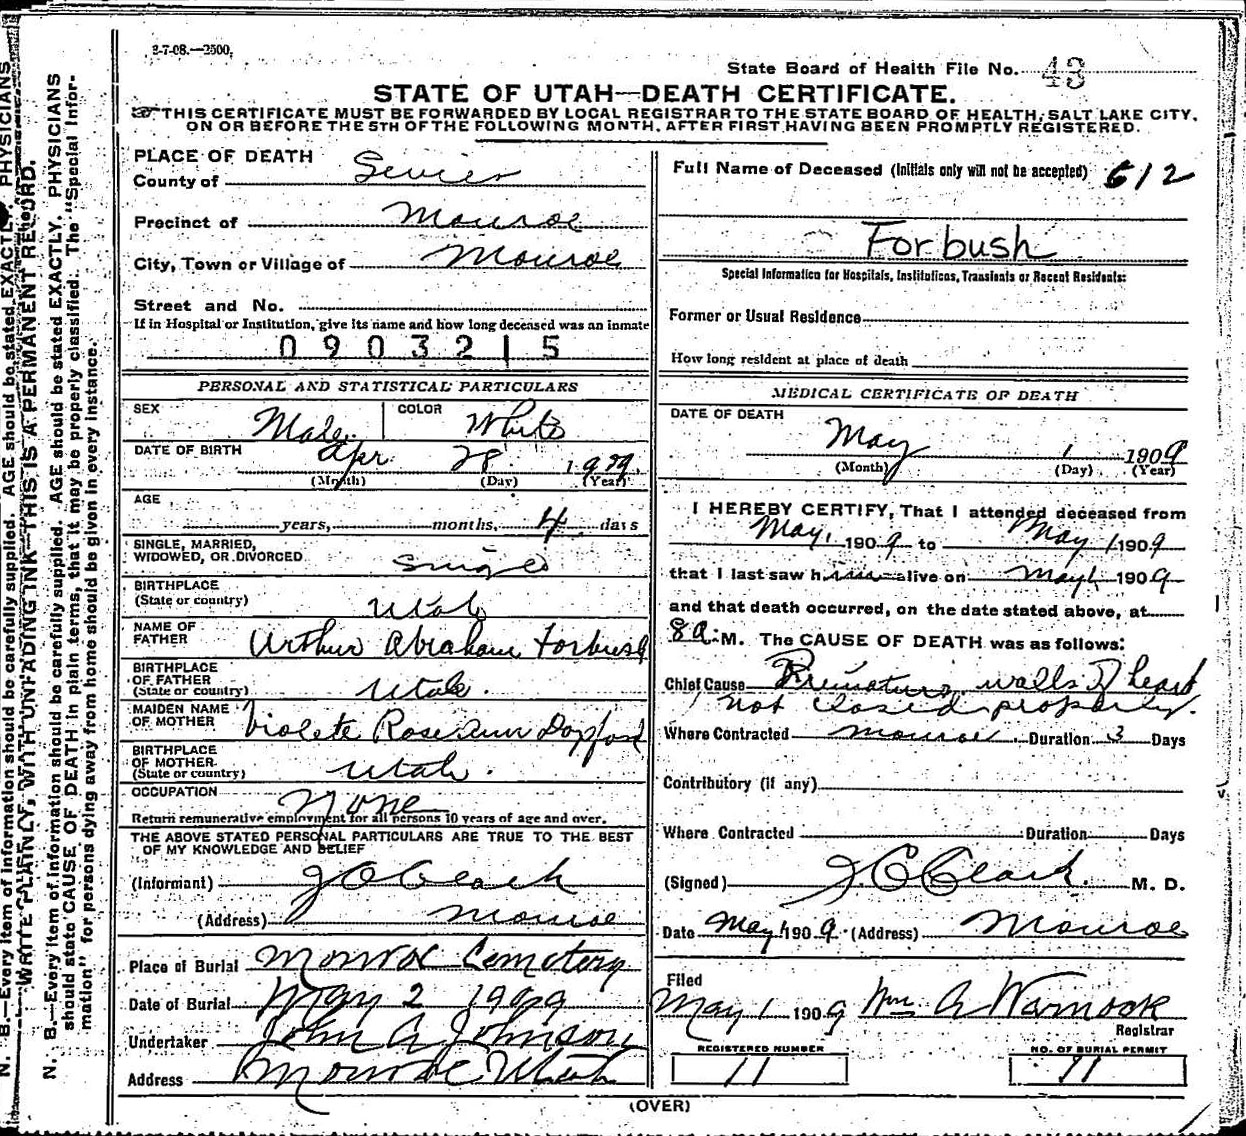 2-7-08.—2500.
State Board of Health File No. 43
STATE OF UTAH—DEATH CERTIFICATE.
THIS CERTIFICATE MUST BE FORWARDED BY LOCAL REGISTRAR TO THE STATE BOARD OF HEALTH, SALT LAKE CITY,
ON OR BEFORE THE 5TH OF THE FOLLOWING MONTH, AFTER FIRST HAVING BEEN PROMPTLY REGISTERED.
PLACE OF DEATH
County of Sevier
Precinct of Monroe
City, Town or Village of Monroe
Street and No.
If in Hospital or Institution, give its name and how long deceased was an inmate
0903215
PERSONAL AND STATISTICAL PARTICULARS
SEX Male COLOR White
DATE OF BIRTH Apr. 28 1909
(Month) (Day) (Year)
AGE
years, months, 4 days
SINGLE, MARRIED,
WIDOWED, OR DIVORCED Single
BIRTHPLACE
(State or country) Utah
NAME OF
FATHER Arthur Abraham Forbush
BIRTHPLACE
OF FATHER
(State or country) Utah.
MAIDEN NAME
OF MOTHER Violete Rose Ann
BIRTHPLACE
OF MOTHER
(State or country) Utah.
OCCUPATION None
Return remunerative employment for all persons 10 years of age and over.
THE ABOVE STATED PERSONAL PARTICULARS ARE TRUE TO THE BEST
OF MY KNOWLEDGE AND BELIEF
(Informant) J C Clark
(Address) Monroe
Place of Burial Monroe Cemetery
Date of Burial May 2 1909
Undertaker John A Johnson
Address Monroe Utah
Full Name of Deceased (Initials only will not be accepted) 612
Forbush
Special Information for Hospitals, Institutions, Transients or Recent Residents:
Former or Usual Residence
How long resident at place of death
MEDICAL CERTIFICATE OF DEATH
DATE OF DEATH
May 1 1909
(Month) (Day) (Year)
I HEREBY CERTIFY, That I attended deceased from
May, 1909 to May 1 1909
that I last saw him alive on May 1, 1909
and that death occurred, on the date stated above, at
8 a. M. The CAUSE OF DEATH was as follows:
Chief Cause Premature, walls of heart
not closed properly.
Where Contracted Monroe. Duration 3 Days
Contributory (if any)
Where Contracted Duration Days
(Signed) J. C Clark. M. D.
Date May 1 1909. (Address) Monroe
Filed
May 1 1909 Wm A Warnock
Registrar
REGISTERED NUMBER
11
NO. OF BURIAL PERMIT
11
(OVER)
N. B.—Every item of information should be carefully supplied. AGE should be stated EXACTLY. PHYSICIANS
WRITE PLAINLY, WITH UNFADING INK—THIS IS A PERMANENT RECORD.
N. B.—Every item of information should be carefully supplied. AGE should be stated EXACTLY. PHYSICIANS
should state CAUSE OF DEATH in plain terms, that it may be properly classified. The "Special Infor-
mation" for persons dying away from home should be given in every instance.